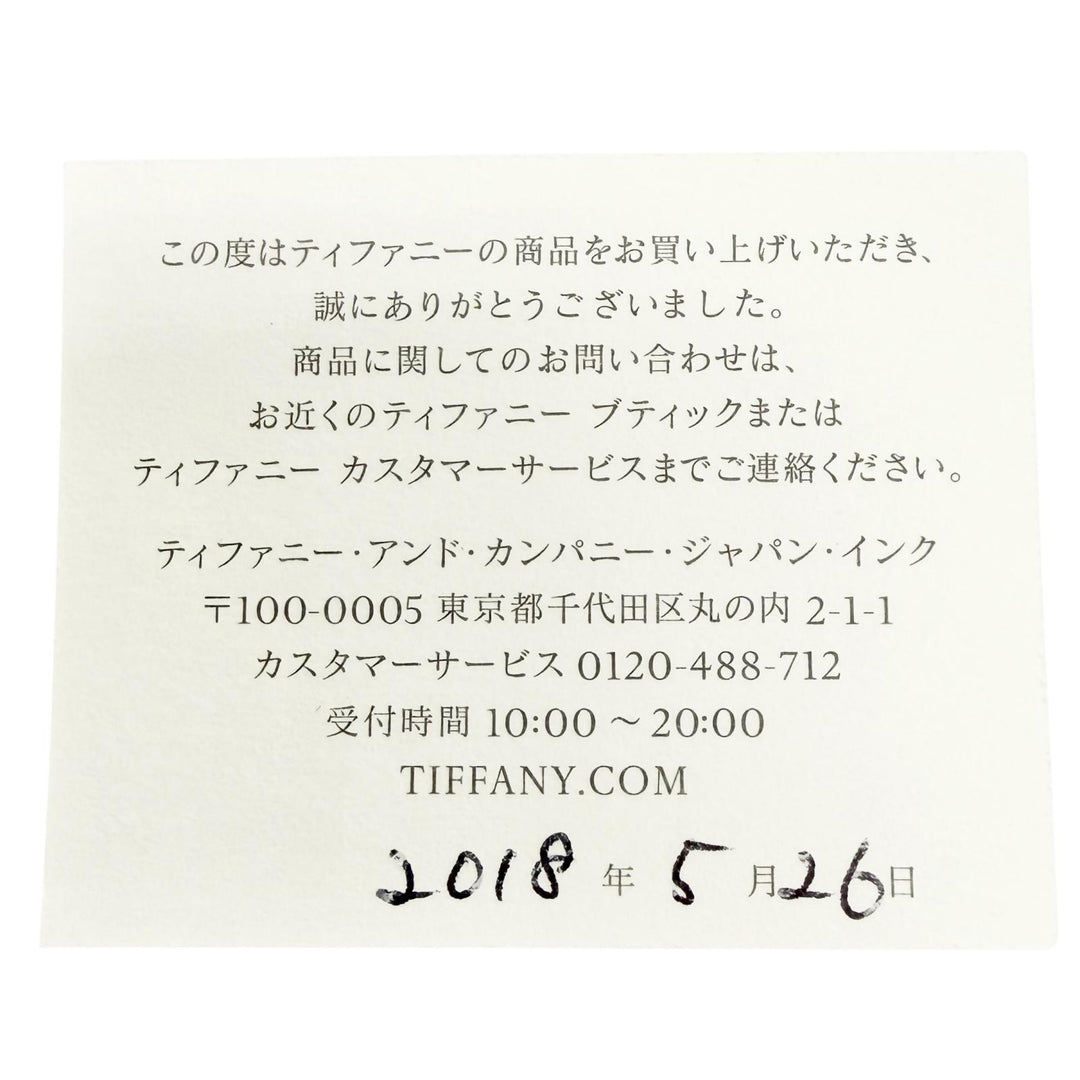 この度はティファニーの商品をお買い上げいただき、
誠にありがとうございました。
商品に関してのお問い合わせは、
お近くのティファニー ブティックまたは
ティファニー カスタマーサービスまでご連絡ください。
ティファニー・アンド・カンパニー・ジャパン・インク
〒100-0005 東京都千代田区丸の内 2-1-1
カスタマーサービス 0120-488-712
受付時間 10:00 ～ 20:00
TIFFANY.COM
2018 年 5 月 26 日